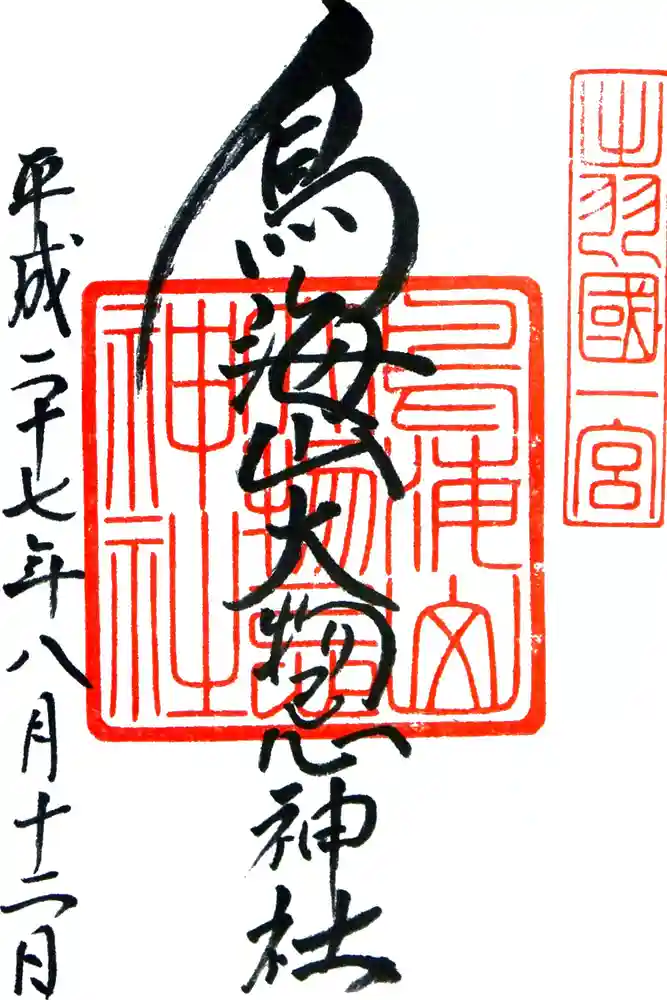 出羽國一宮
鳥海山
大物忌
神社
鳥海山大物忌神社
平成二十七年八月十二日